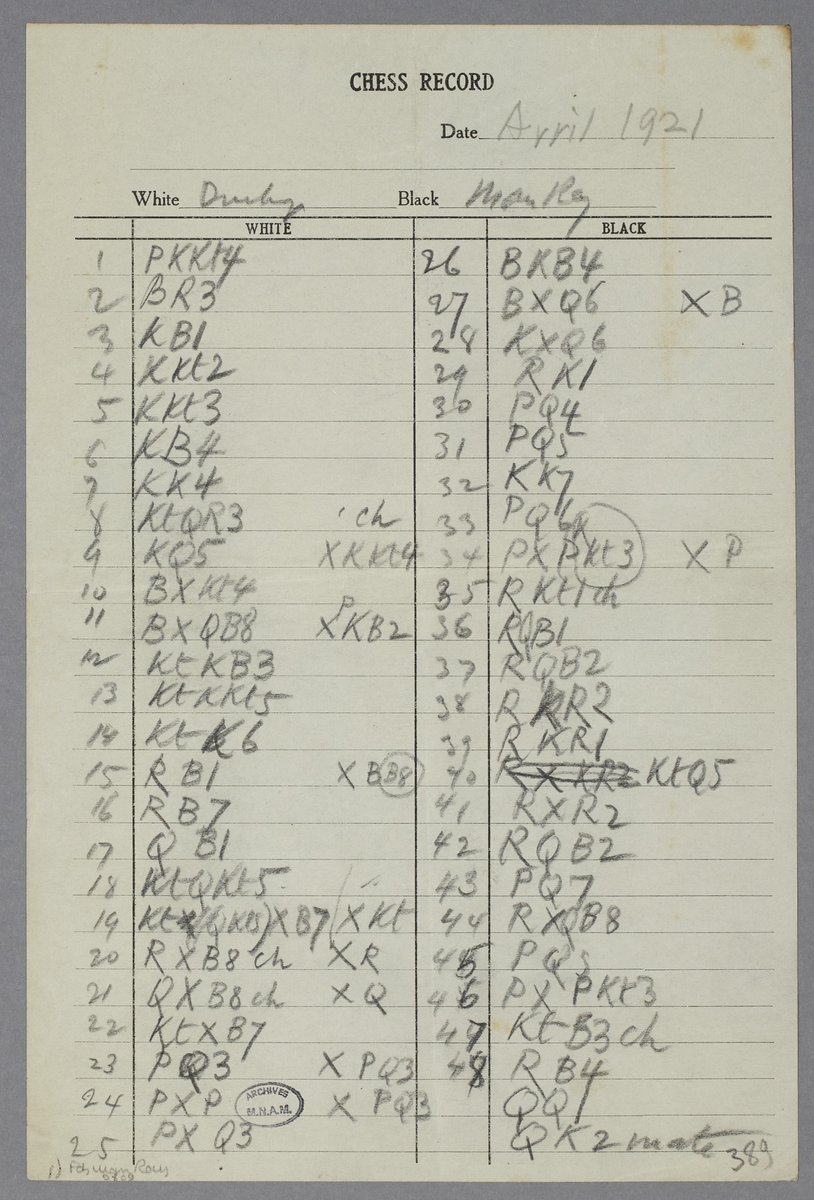 CHESS RECORD
Date April 1921
White Black Man Ray
WHITE BLACK
1 PKKt4 26 BKB4
2 BR3 27 BXQ6 XB
3 KB1 28 KXQ6
4 KKt2 29 RK1
5 KKt3 30 PQ4
6 KB4 31 PQ5
7 KK4 32 KK7
8 KtQR3 ch 33 PQ6
9 KQ5 XKKt4 34 PXPKt3 XP
10 BXKt4 35 RKt1ch
11 BXQB8 XPKB2 36 RQB1
12 KtKB3 37 RQB2
13 KtKKt5 38 RKR2
14 KtK6 39 RKR1
15 RB1 XBB8 40 RXKR2 KtQ5
16 RB7 41 RXR2
17 QB1 42 RQB2
18 KtQKt5 43 PQ7
19 XB7 (XKt 44 RXQB8
20 RXB8ch XR 45
21 QXB8ch XQ 46 PXPKt3
22 KtXB7 47 KtB3ch
23 PQ3 XPQ3 48 RB4
24 PXP ARCHIVES M.N.A.M. XPQ3 QQ1
25 PXQ3 QK2mate
389